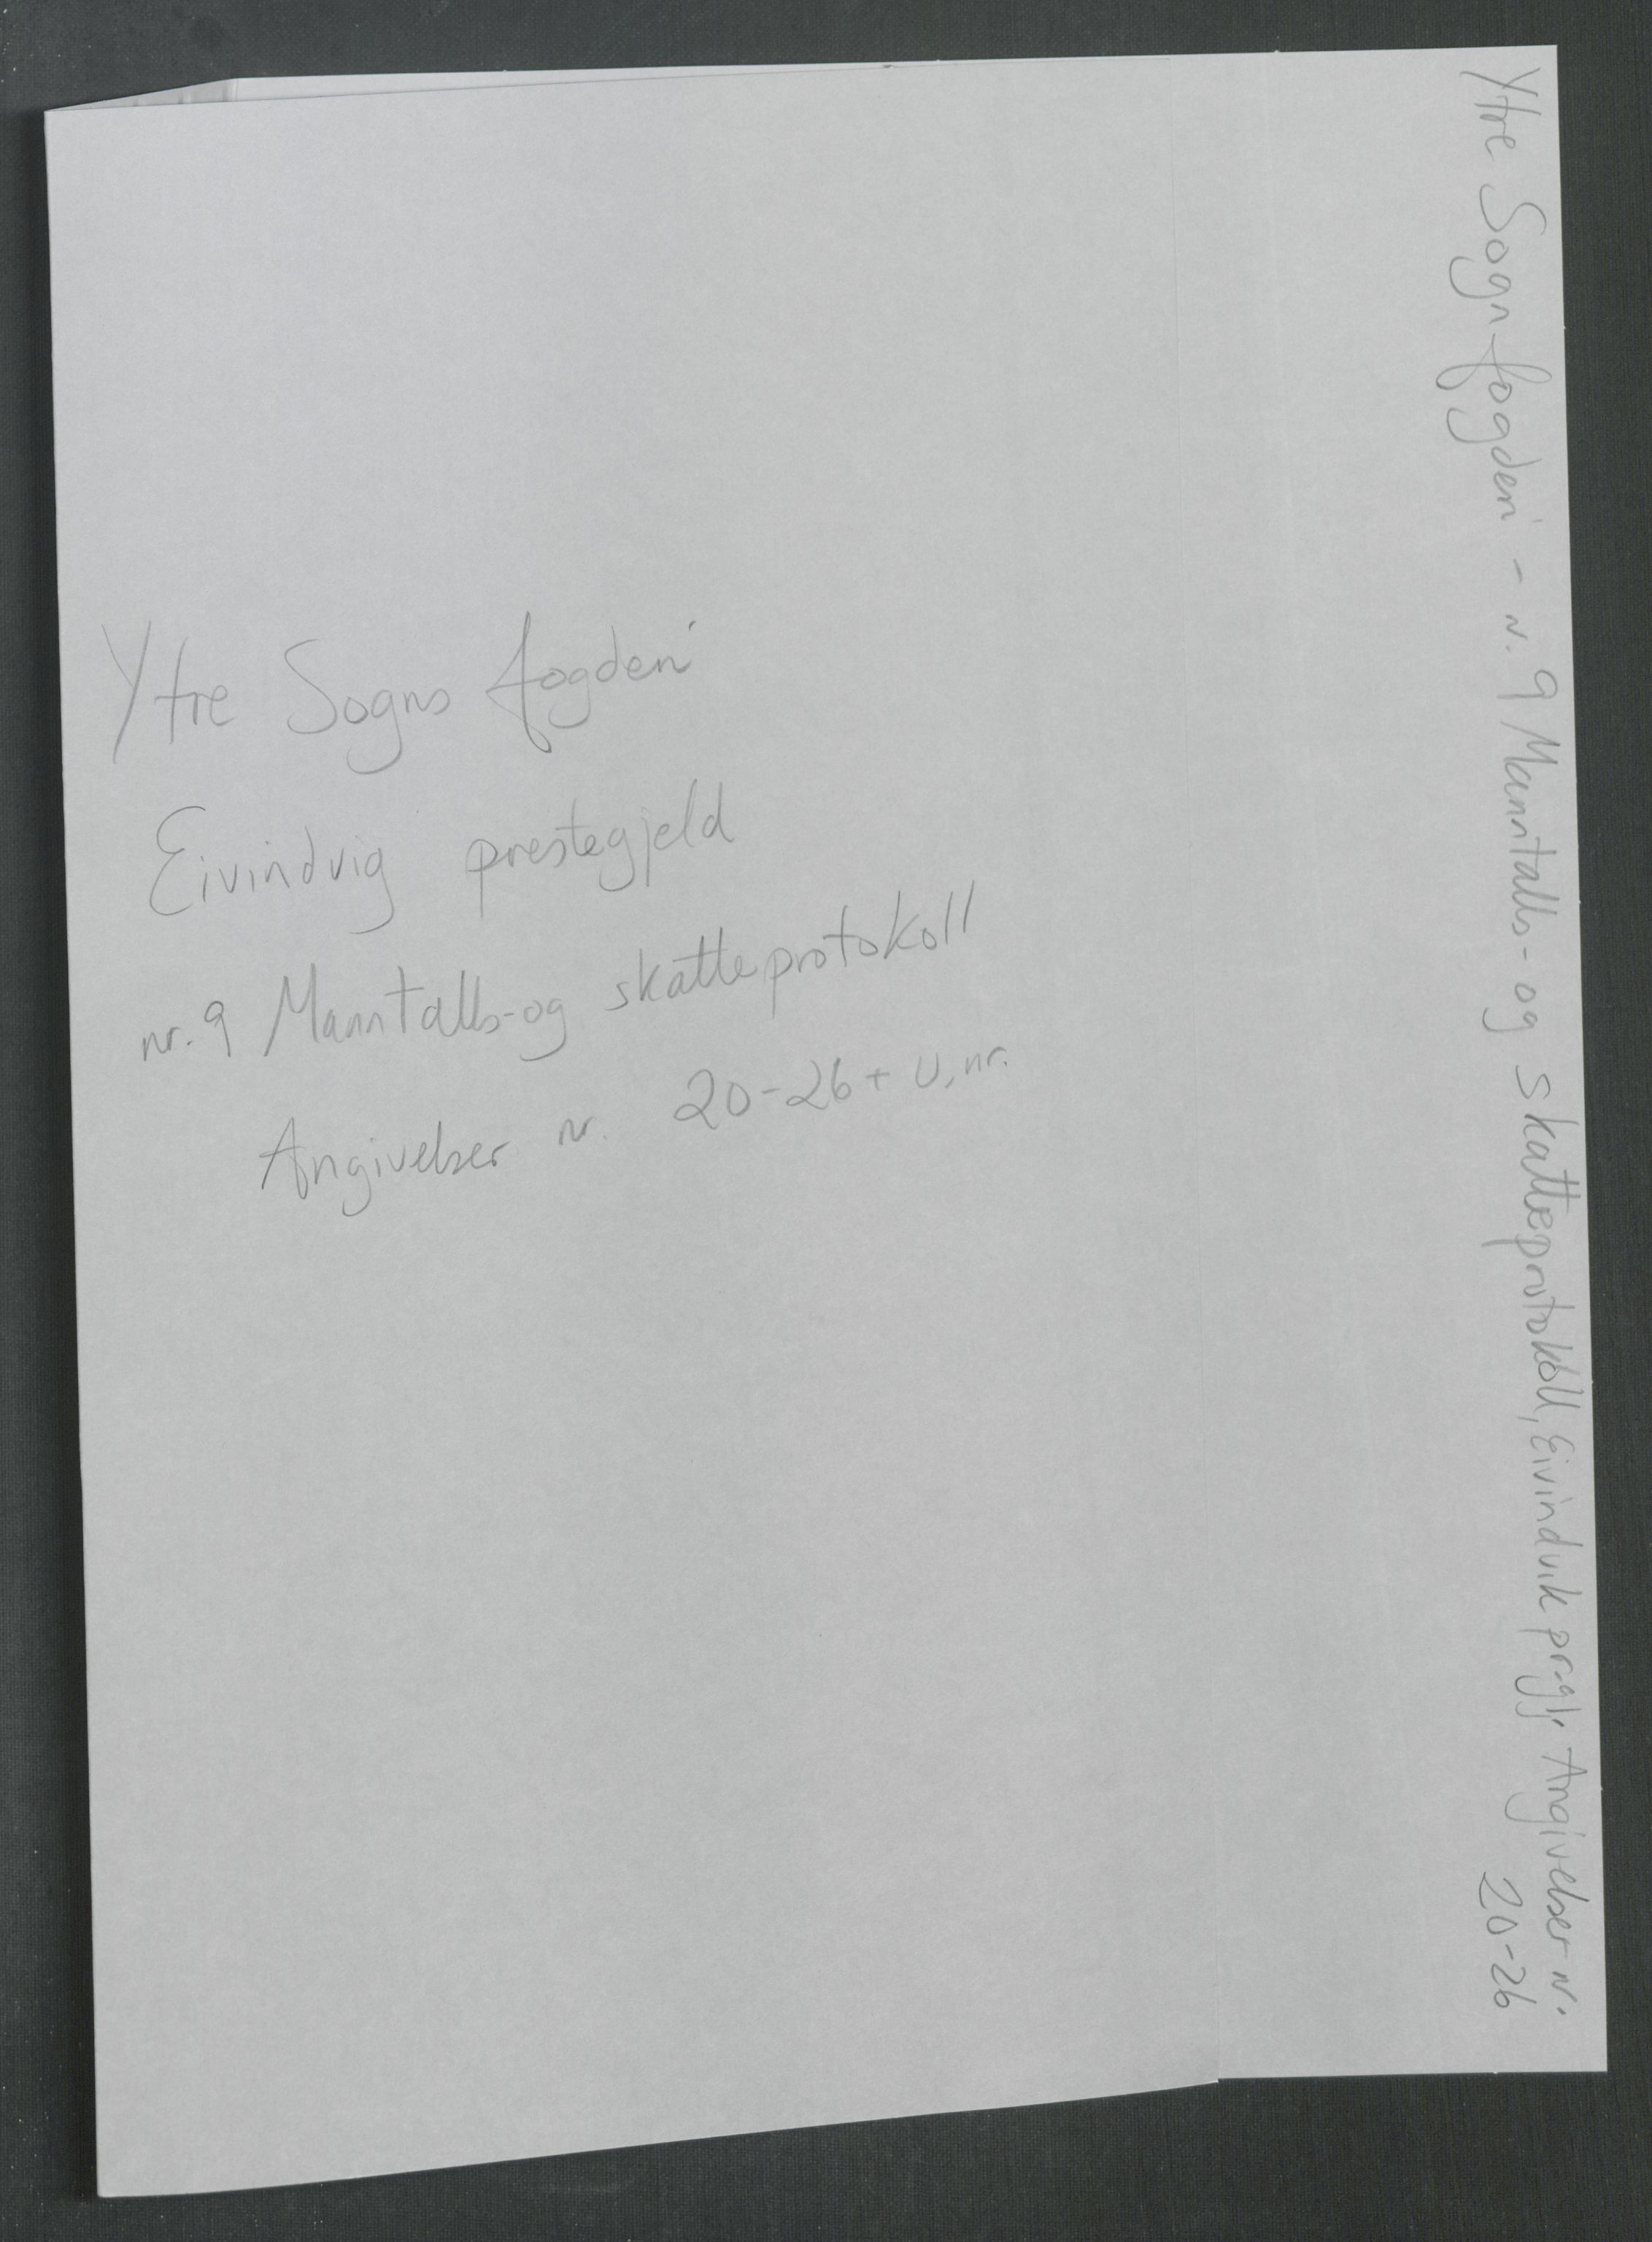 Ytre Sogns fogderi
Eivindvig prestegjeld
nr. 9 Manntalls-og skatteprotokoll
Angivelser nr. 20-26 + u,nr.
Ytre Sogn fogderi - nr. 9 Manntalls- og skatteprotokoll, Eivindvik prgj. Angivelser nr.
20-26